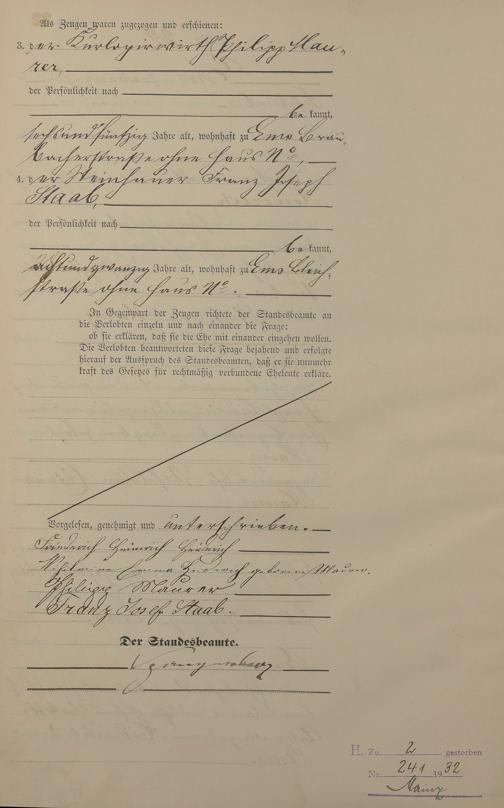 Als Zeugen waren zugezogen und erschienen:
3. der Kurlogirwirth Philipp Mau-
rer,
der Persönlichkeit nach
be kannt,
sechsundfünfzig Jahre alt, wohnhaft zu Ems Brau-
bacherstraße ohne Haus No,
4. der Steinhauer Franz Joseph
Staab,
der Persönlichkeit nach
be kannt,
achtundzwanzig Jahre alt, wohnhaft zu Ems Bleich-
straße ohne Haus No.
In Gegenwart der Zeugen richtete der Standesbeamte an
die Verlobten einzeln und nach einander die Frage:
ob sie erklären, daß sie die Ehe mit einander eingehen wollen.
Die Verlobten beantworteten diese Frage bejahend und erfolgte
hierauf der Ausspruch des Standesbeamten, daß er sie nunmehr
kraft des Gesetzes für rechtmäßig verbundene Eheleute erkläre.
Vorgelesen, genehmigt und unterschrieben.
Friedrich Heinrich Heinrich
geborene Maurer.
Philipp Maurer
Franz Josef Staab.
Der Standesbeamte.
H. Zu 2 gestorben
Nr. 241 1932
Mainz